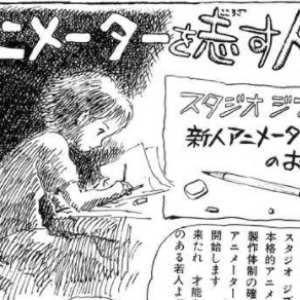 ニメーターを志す人
スタジオ ジブ
新人アニメータ
のお
スタジオ ジ
本格的アニメ
製作体制の確
アニメーター
開始します
来たれ 才能
のある若人よ